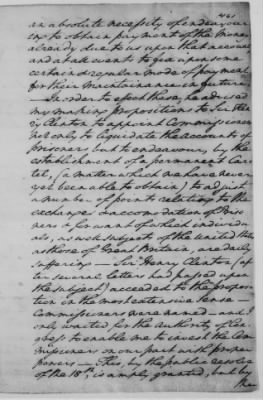 461
an absolute necessity of endeavour
ing to obtain payment of the Money
already due to us upon that account
and at all events to fix upon some
certain & regular mode of payment
for their Maintainance in future.
—In order to effect these, he advised
my making propositions to Sir Hen
ry Clinton to appoint Commissioners
not only to liquidate the accounts of
prisoners but to endeavour, by the
establishment of a permanent Car
tel, (a matter which we have never
yet been able to obtain) to adjust
a number of points relating to the
exchange & accomodation of Priso
ners & for want of which individu
als, as well subjects of the United States
as those of Great Britain, are daily
suffering — Sir Henry Clinton (af
ter several letters had passed upon
the subject) acceded to the proposi
tion in the most extensive sense —
Commissioners were named — and I
only waited for the Authority of Con
gress to enable me to invest the Com
missioners on our part with proper
powers — This, by the public resolve
of the 18th, is amply granted, but by
the